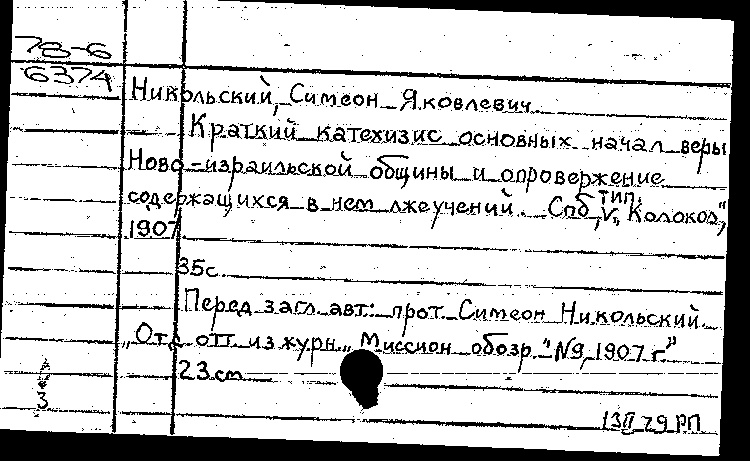 78-6
6374
Никольский, Симеон Яковлевич.
Краткий катехизис основных начал веры
Ново-израильской общины и опровержение
содержащихся в нем лжеучений. Спб, тип. „Колокол",
1907
35с.
Перед загл. авт: прот. Симеон Никольский.
„Отд. отт. из журн. „Миссион. обозр." №9, 1907 г."
23 см
3
13 II 79 РП